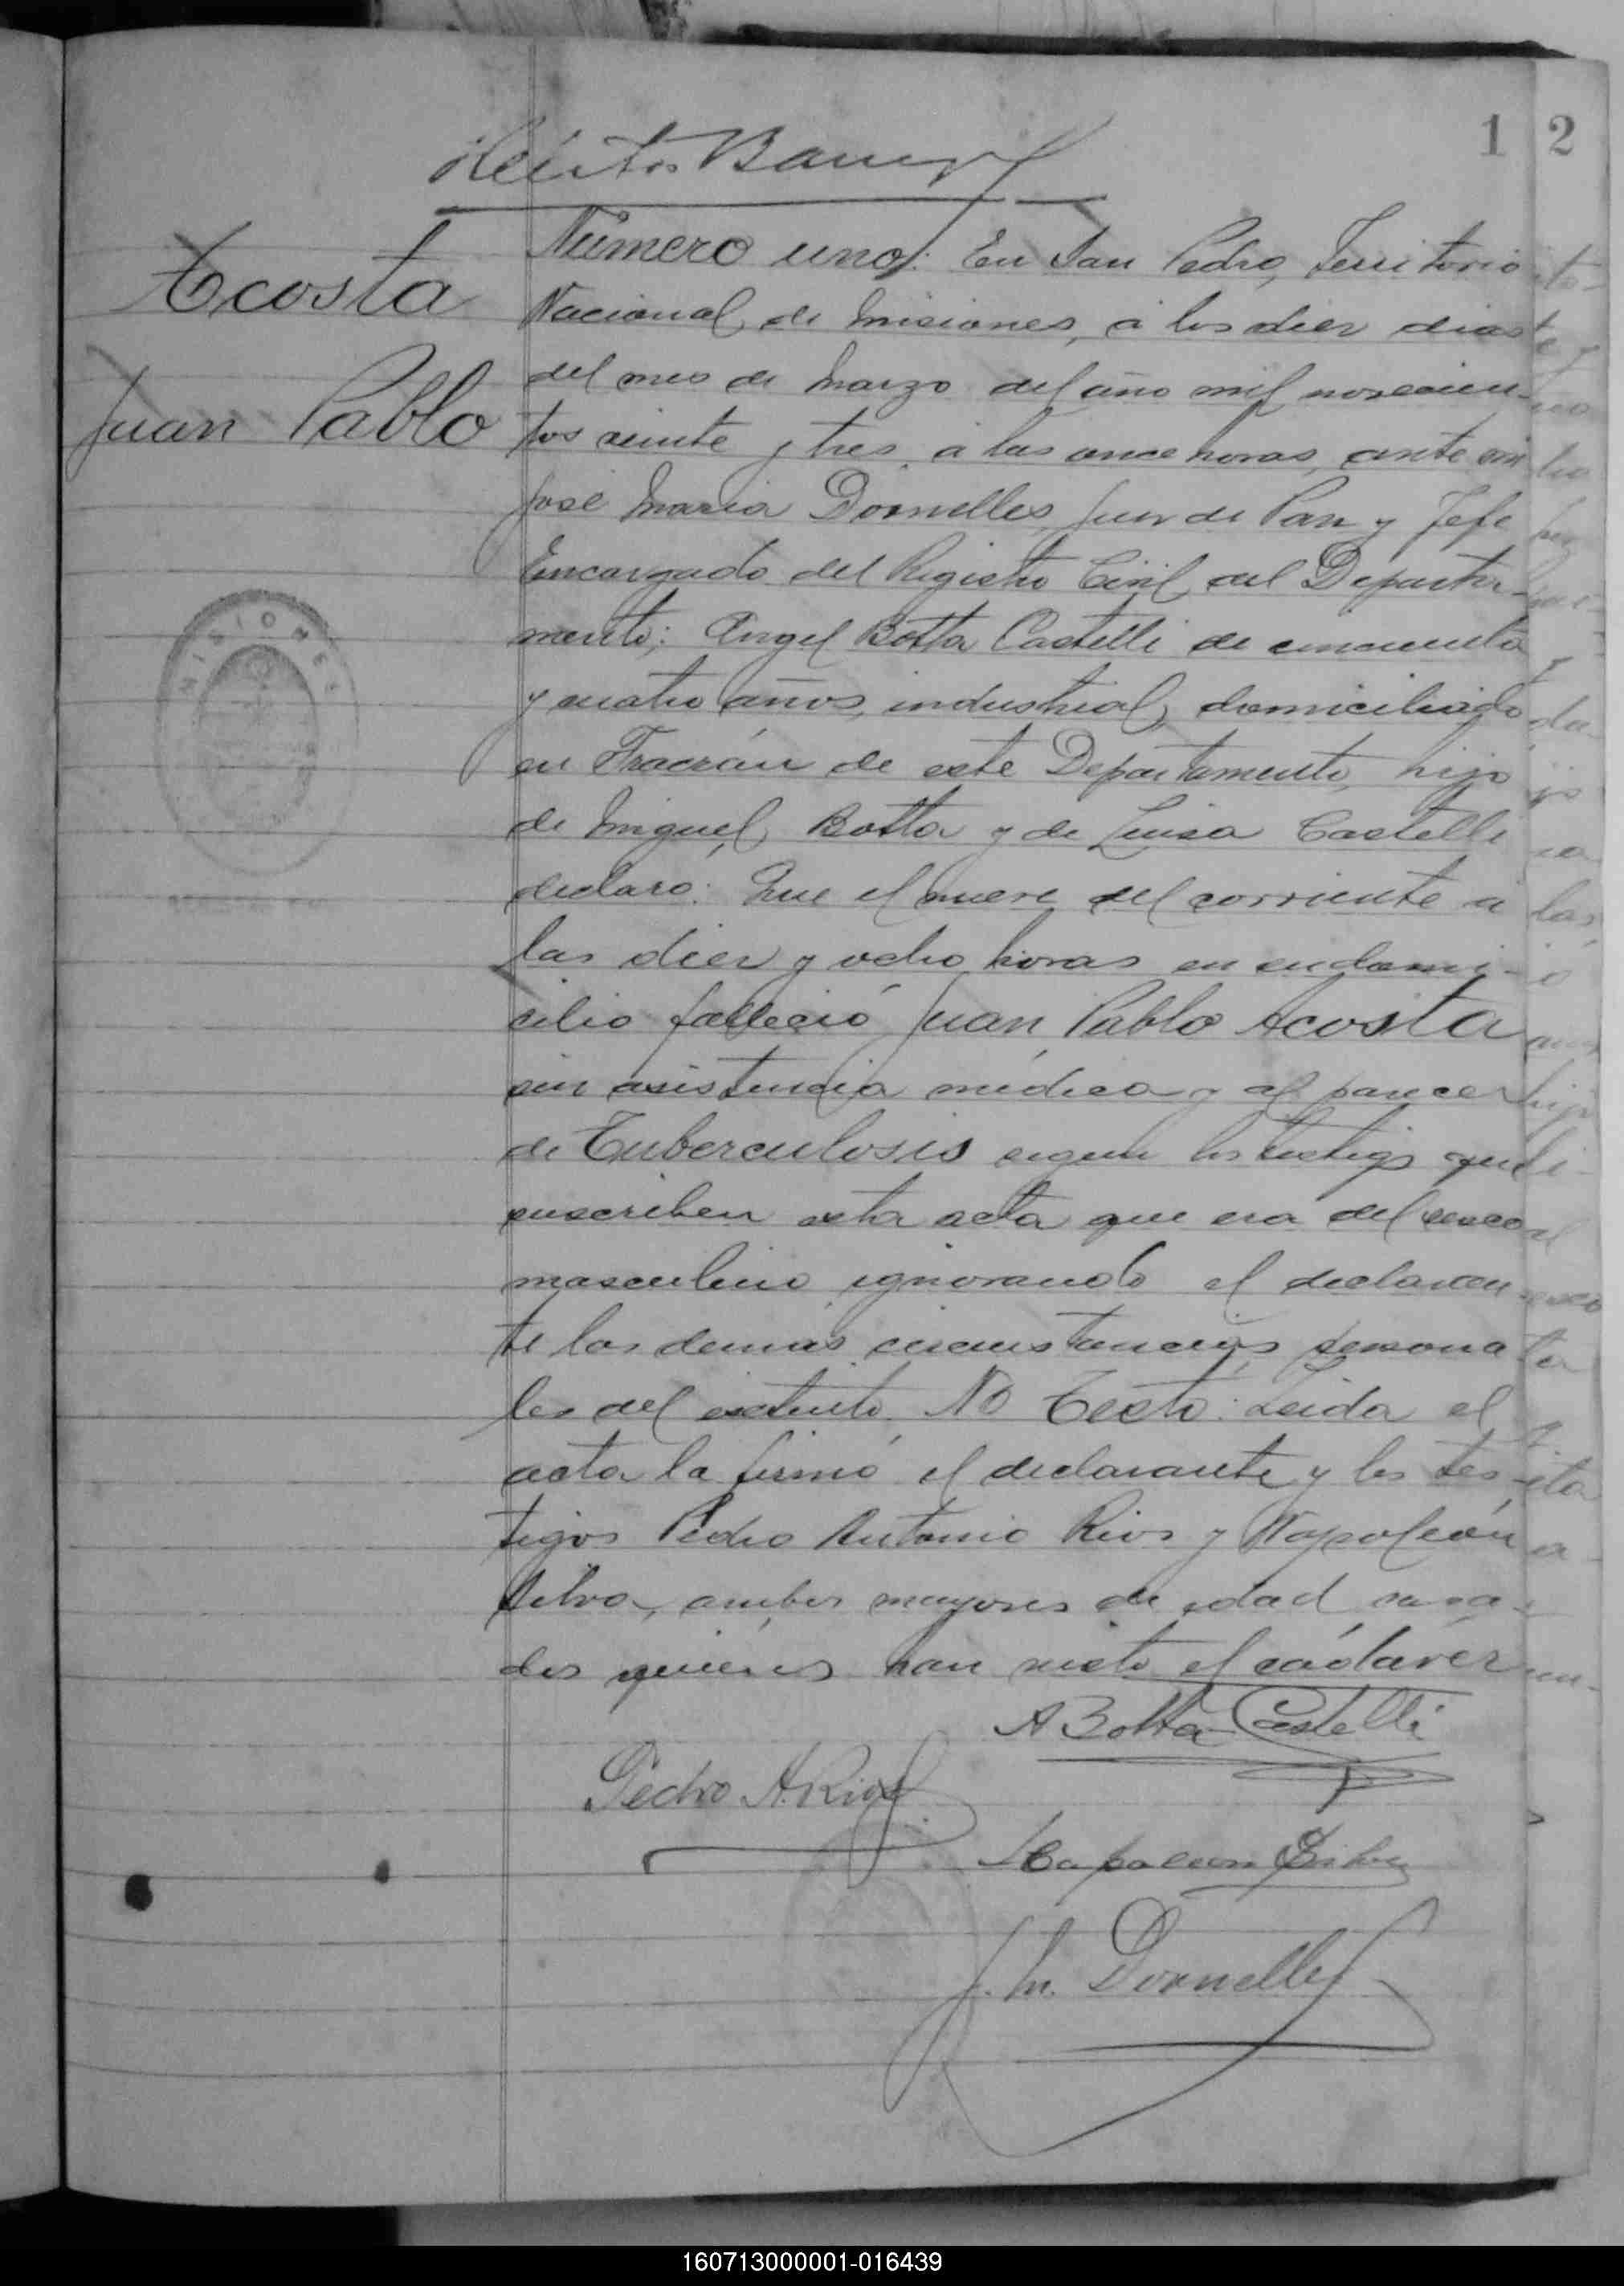 1 2
Acosta
Juan Pablo
MISIONES
Número uno: En San Pedro, Territorio
Nacional de Misiones, á los diez dias
del mes de Marzo del año mil novecien-
tos veinte y tres, á las once horas, ante mi
José Maria Dornelles, Juez de Paz y Jefe
Encargado del Registro Civil del Departa-
mento; Angel Botta Castelli de cincuenta
y cuatro años, industrial, domiciliado
en Fracrán de este Departamento, hijo
de Miguel Botta y de Luisa Castelli
declaró: Que el nueve del corriente á
las diez y ocho horas en su domi-
cilio falleció Juan Pablo Acosta
sin asistencia médica y al parecer
de Tuberculosis segun los testigos que
suscriben esta acta que era del sexo
masculino ignorando el declaran
te las demás circunstancias persona
les del extinto. No Testó: Leida el
acta la firmó el declarante y los tes-
tigos Pedro Antonio Rios y Napoleón
Silva, ambos mayores de edad casa-
dos quiénes han visto el cadáver
A Botta Castelli
Pedro A. Rios
Napoleon Silva
J. M. Dornelles
160713000001-016439